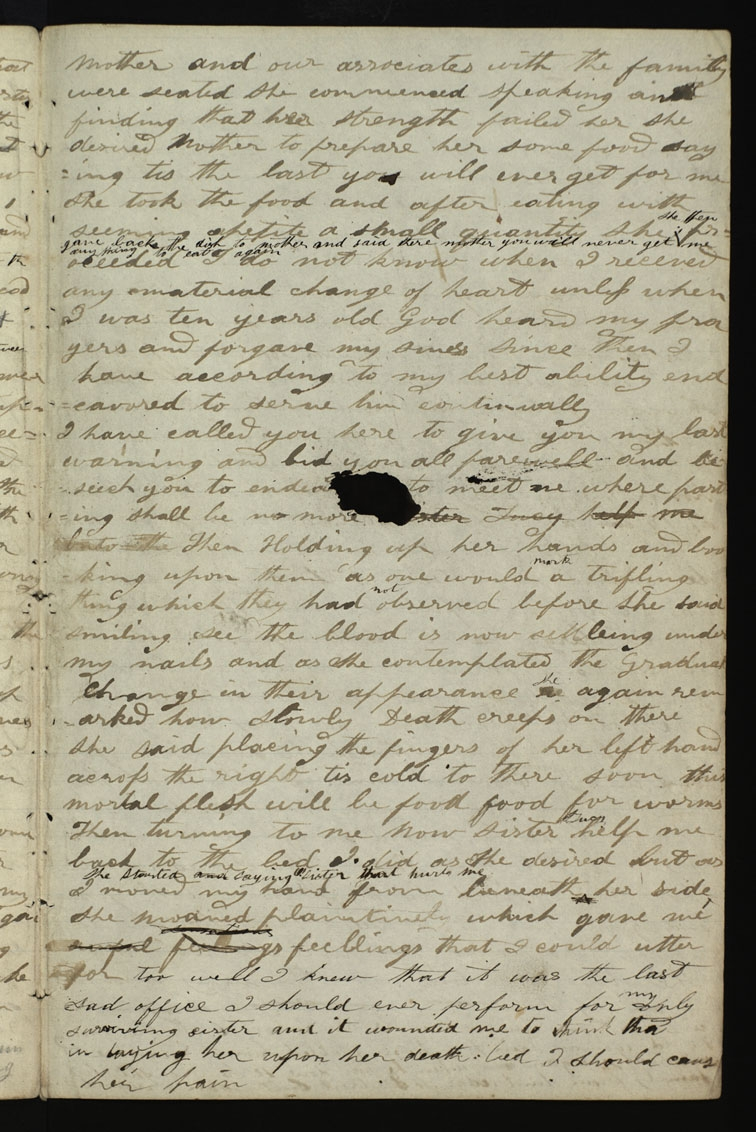 mother and our associates with the family
were seated she commenced speaking and
finding that her strength failed her she
desired Mother to prepare her some food say
=ing tis the last you will ever get for me
she took the food and after eating with
seeming apetite a small quantity she pr=
she then
gave back the dish to mother and said here mother you will never get me
anything to eat again
oceeded I do not know when I receved
any material change of heart unless when
I was ten years old God heard my pra
yers and forgave my sines since then I
have according to my best ability end
=eavored to serve him continually
I have called you here to give you my last
warning and bid you all farewell and be
=seech you to endea to meet me where part
=ing shall be no more Lucy help me
Then Holding up her hands and loo
=king upon them as one would mark a trifling
thing which they had not observed before she said
smiling see the blood is now settleing under
my nails and as she contemplated the Gradual
Change in their appearance she again rem
=arked how slowly Death creeps on there
she said placing the fingers of her left hand
across the right tis cold to there soon this
mortal flesh will be food food for worms
Then turning to me Now sister Lucy help me
back to the bed I did as she desired but as
She started and saying "Sister that hurts me
I moved my hand from beneath her side
she moaned plaintively which gave me
feellings that I could utter
for too well I knew that it was the last
sad office I should ever perform for my only
surviving sister and it wounded me to think tha
in laying her upon her death=bed I should caus
her pain